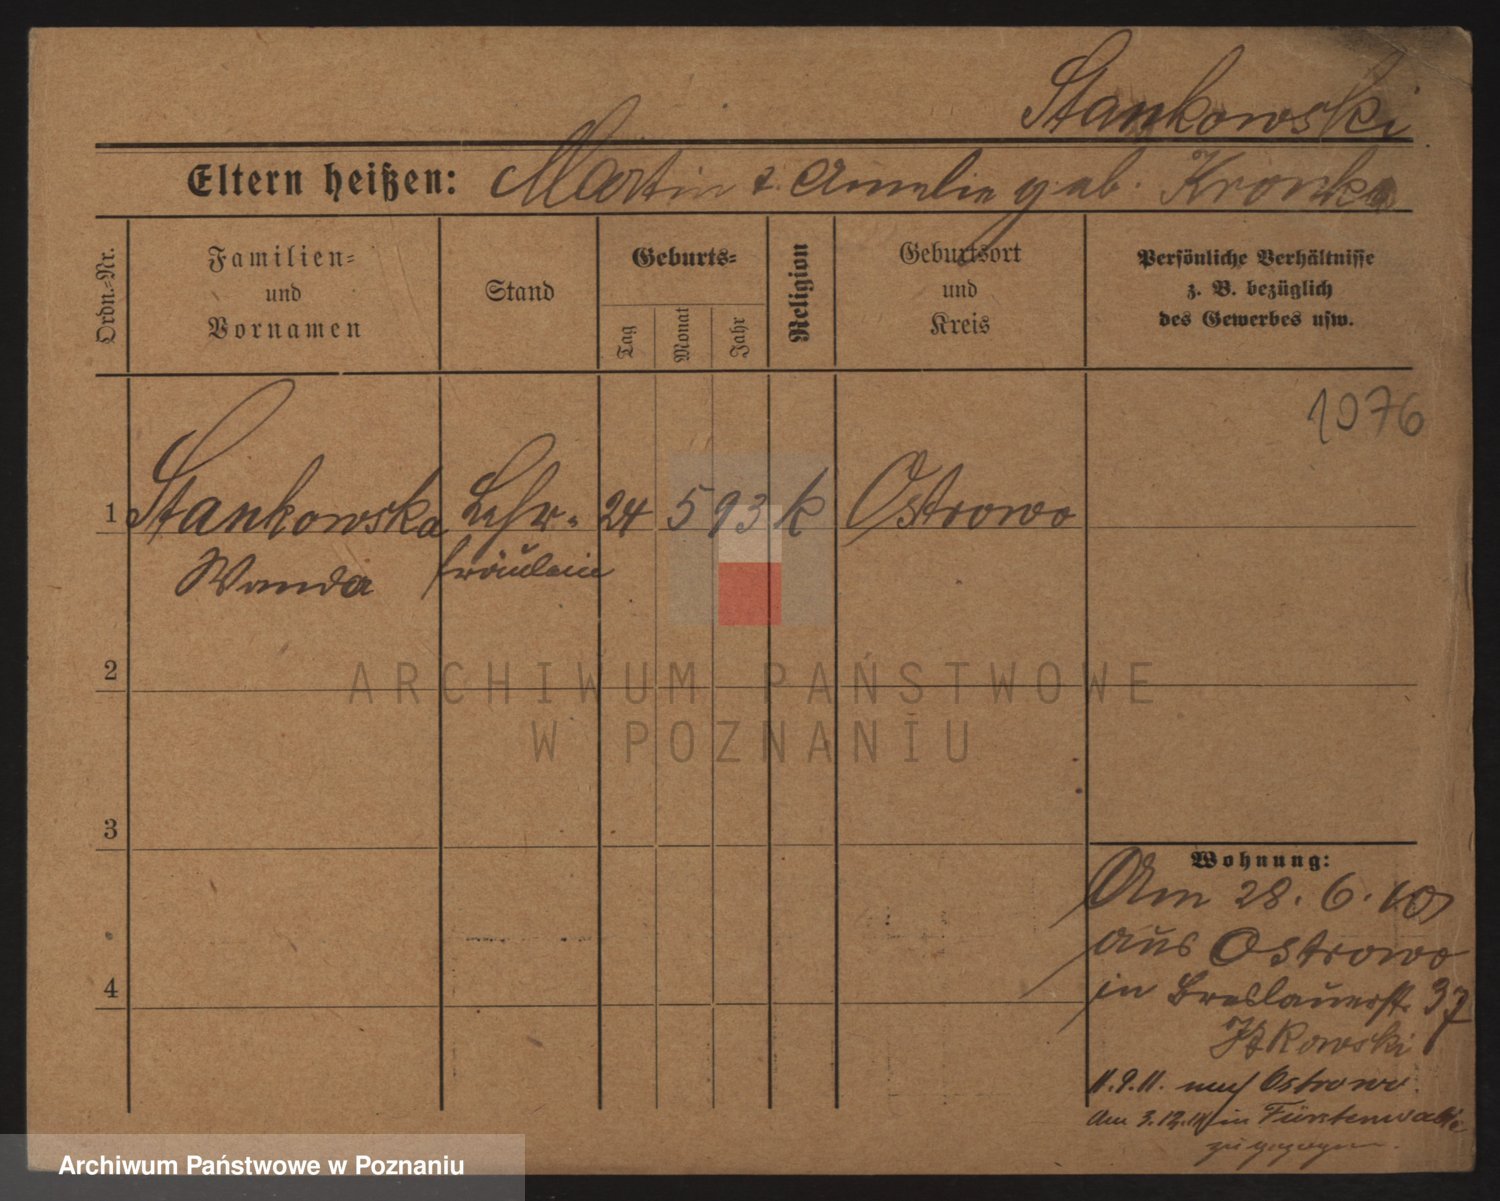 Stankowski
Eltern heißen: Martin u. Amelie geb. Kronka
Ordn.-Nr.
Familien-
und
Vornamen
Stand
Geburts-
Tag
Monat
Jahr
Religion
Geburtsort
und
Kreis
Persönliche Verhältnisse
z. B. bezüglich
des Gewerbes usw.
1076
1 Stankowska Lehr- 24 5 93 k Ostrowo
Wanda fräulein
2
ARCHIWUM PAŃSTWOWE
W POZNANIU
3
Wohnung:
Am 28. 6. 10
aus Ostrowo
4
in Breslauerstr. 37
11.9.11. nach Ostrowo.
Am 3.12. in Fürstenwalde
zugezogen.
Archiwum Państwowe w Poznaniu